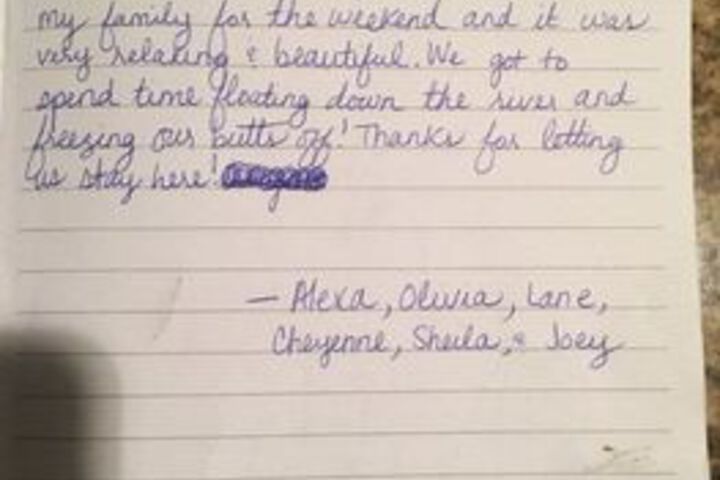 my family for the weekend and it was
very relaxing & beautiful. We got to
spend time floating down the river and
freezing our butts off! Thanks for letting
us stay here!
— Alexa, Olivia, Lane,
Cheyenne, Sheila, & Joey